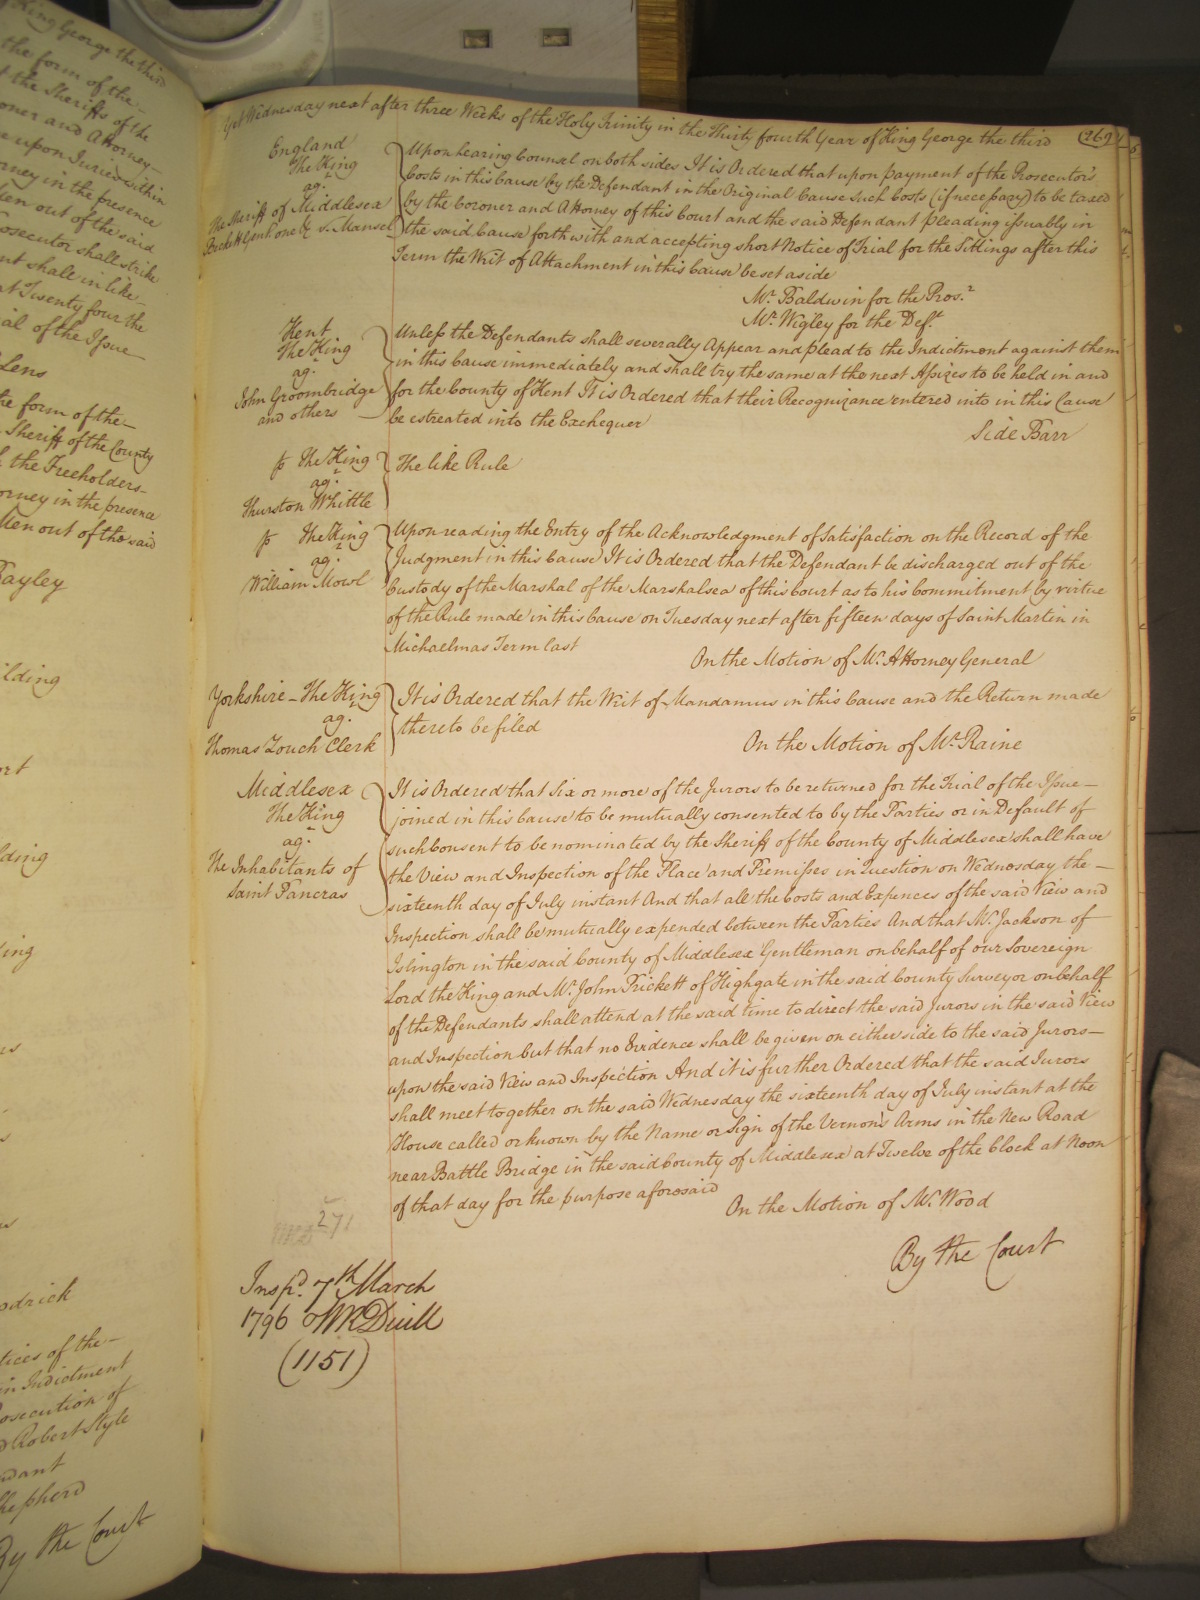 King George the third
the form of the
the Sheriffs of the
oner and Attorney
upon Juries within
rney in the presence
en out of the said
osecutor shall strike
nt shall in like
at Twenty four the
ial of the Issue
Lens
he form of the
Sheriff of the County
the Freeholders
orney in the presence
Men out of the said
Tayley
ilding
ort
lding
ing
odrick
tices of the
in Indictment
osecution of
Robert Style
ndant
Shepherd
By the Court
Yet Wednesday next after three Weeks of the Holy Trinity in the Thirty fourth Year of King George the third
England
The King
agt.
The Sheriff of Middlesex
Beckett Gent one &c v. Mansel
Upon hearing Counsel on both sides It is Ordered that upon payment of the Prosecutor's
Costs in this Cause by the Defendant in the Original Cause such Costs (if necessary) to be taxed
by the Coroner and Attorney of this Court and the said Defendant pleading issuably in
the said Cause forthwith and accepting short Notice of Trial for the Sittings after this
Term the Writ of Attachment in this Cause be set aside
Mr. Baldwin for the Pros.r
Mr. Wigley for the Def.t
Kent
The King
agt.
John Groombridge
and others
Unless the Defendants shall severally Appear and plead to the Indictment against them
in this Cause immediately and shall try the same at the next Assizes to be held in and
for the County of Kent It is Ordered that their Recognizance entered into in this Cause
be estreated into the Exchequer
Side Barr
The King
agt.
Thurston Whittle
The like Rule
The King
agt.
William Mowl
Upon reading the Entry of the Acknowledgment of Satisfaction on the Record of the
Judgment in this Cause It is Ordered that the Defendant be discharged out of the
Custody of the Marshal of the Marshalsea of this Court as to his Commitment by virtue
of the Rule made in this Cause on Tuesday next after fifteen days of Saint Martin in
Michaelmas Term last
On the Motion of Mr. Attorney General
Yorkshire - The King
agt.
Thomas Zouch Clerk
It is Ordered that the Writ of Mandamus in this Cause and the Return made
thereto be filed
On the Motion of Mr. Raine
Middlesex
The King
agt.
The Inhabitants of
Saint Pancras
It is Ordered that Six or more of the Jurors to be returned for the Trial of the Issue
joined in this Cause to be mutually consented to by the Parties or in Default of
such Consent to be nominated by the Sheriff of the County of Middlesex shall have
the View and Inspection of the Place and Premisses in Question on Wednesday the
sixteenth day of July instant And that all the Costs and Expences of the said View and
Inspection shall be mutually expended between the Parties And that Mr. Jackson of
Islington in the said County of Middlesex Gentleman on behalf of our Sovereign
Lord the King and Mr. John Prickett of Highgate in the said County Surveyor on behalf
of the Defendants shall attend at the said time to direct the said Jurors in the said View
and Inspection but that no Evidence shall be given on either side to the said Jurors
upon the said View and Inspection And it is further Ordered that the said Jurors
shall meet together on the said Wednesday the sixteenth day of July instant at the
House called or known by the Name or Sign of the Vernon's Arms in the New Road
near Battle Bridge in the said County of Middlesex at Twelve of the Clock at Noon
of that day for the purpose aforesaid
On the Motion of Mr. Wood
By the Court
271
Inspd. 7th March
1796
(1151)